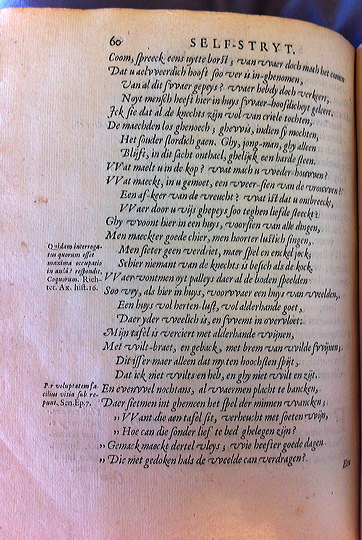 60
SELF-STRYT.
Coom, spreeck eens uytte borst; van vvaer doch mach het comen
Dat u aelvveerdich hooft soo ver is in-ghenomen,
Van al dit svvaer gepeys? vvaer hebdy doch verkeert,
Noyt mensch heeft hier in huys svvaer-hoofdicheyt geleert.
Ick sie dat al de knechts zijn vol van criele tochten,
De maechden los ghenoech; ghevvis, indien sy mochten,
Het souder slordich gaen. Ghy, jong-man, ghy alleen
Blijft, in dit sacht onthael, ghelijck een harde steen.
VVat maelt u in de kop? vvat mach u vveder-houvven?
VVat maeckt, in u gemoet, een vveer-sien van de vrouvven?
Een af-keer van de vreucht? vvat ist dat u onbreeckt,
VVaer door u vvijs ghepeys soo teghen liefde steeckt?
Ghy vvoont hier in een huys, voorsien van alle dingen,
Men maeckter goede chier, men hoorter lustich singen,
Men sieter geen verdriet, maer spel en enckel jock,
Schier niemant van de knechts is besich als de kock.
VVaer vontmen oyt palleys daer al de boden speelden
Soo vry, als hier in huys, voorvvaer een huys van vveelden,
Een huys vol herten-lust, vol alderhande goet,
Daer yder vveelich is, en svvemt in overvloet:
Mijn tafel is verciert met alderhande vvijnen,
Met vvilt-braet, en geback, met brem van vvilde svvijnen;
Dit isser maer alleen dat my ten hoochsten spijt,
Dat ick niet vvilts en heb, en ghy niet vvilt en zijt.
En evenvvel nochtans, al vvaermen placht te bancken,
Daer sietmen int ghemeen het spel der minnen vvancken;
„ VVant die aen tafel sit, verheucht met soeten vvijn,
„ Hoe can die sonder lief te bed ghelegen zijn?
„ Gemack maeckt dertel vleys; vvie heeft er goede dagen
„ Die met gedoken hals de vveelde can verdragen?
Quidam interroga-
tus quorum esset
maxima occupatio
in aula? respondit,
Coquorum. Rich-
ter. Ax. hist. 16.
Per voluptatem fa-
cilius vitia sub re-
punt. Sen. Ep. 7.